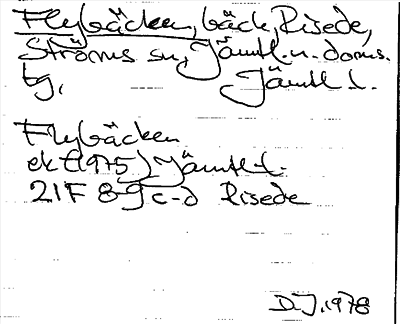 Flybäcken, bäck, Risede,
Ströms sn, Jämtl. n. doms.
tg, Jämtl l.
Flybäcken
ek (1975) Jämtl l.
21F 8-9 c-d Risede
D.J. 1978